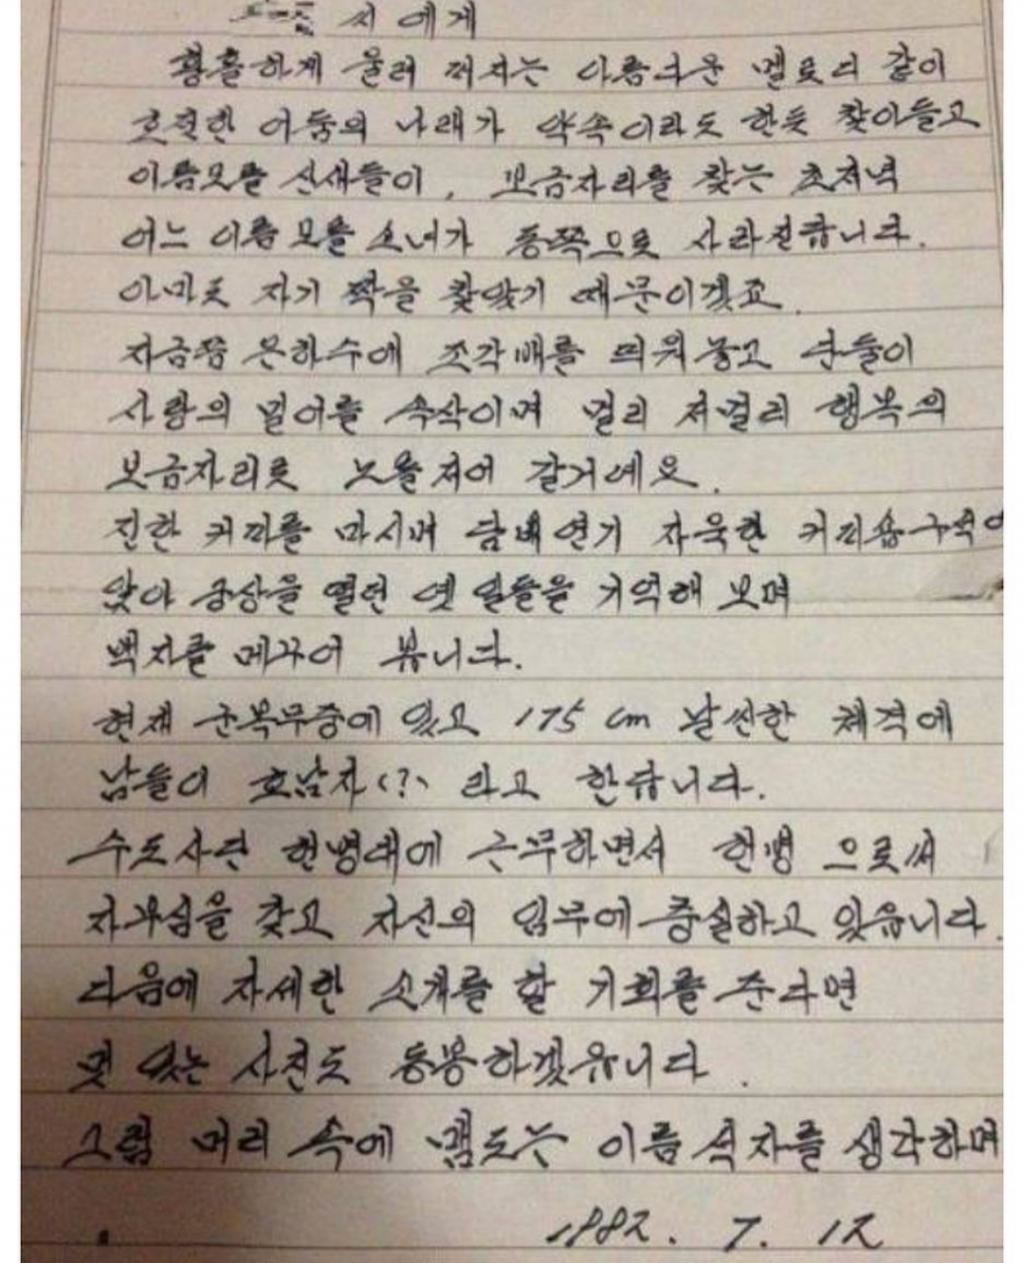 씨 에게
황홀하게 울려 퍼지는 아름다운 멜로디 같이
호젓한 어둠의 나래가 약속이라도 한듯 찾아들고
이름모를 산새들이, 보금자리를 찾는 초저녁
어느 이름 모를 소녀가 동쪽으로 사라진답니다.
아마도 자기 짝을 찾았기 때문이겠죠.
지금쯤 은하수에 조각배를 띄워놓고 단둘이
사랑의 밀어를 속삭이며 멀리 저멀리 행복의
보금자리로 노를저어 갈거예요.
진한 커피를 마시며 담배연기 자욱한 커피숍구석에
앉아 공상을 펼던 옛 일들을 기억해 보며
백지를 메꾸어 봅니다.
현재 군복무중에 있고 175 cm 날씬한 체격에
남들이 호남자(?) 라고 한답니다.
수도사단 헌병대에 근무하면서 헌병 으로써
자부심을 갖고 자신의 임무에 충실하고 있읍니다.
다음에 자세한 소개를 할 기회를 준다면
멋 있는 사진도 동봉하겠읍니다.
그럼 머리 속에 맴도는 이름 석자를 생각하며
1982. 7. 12